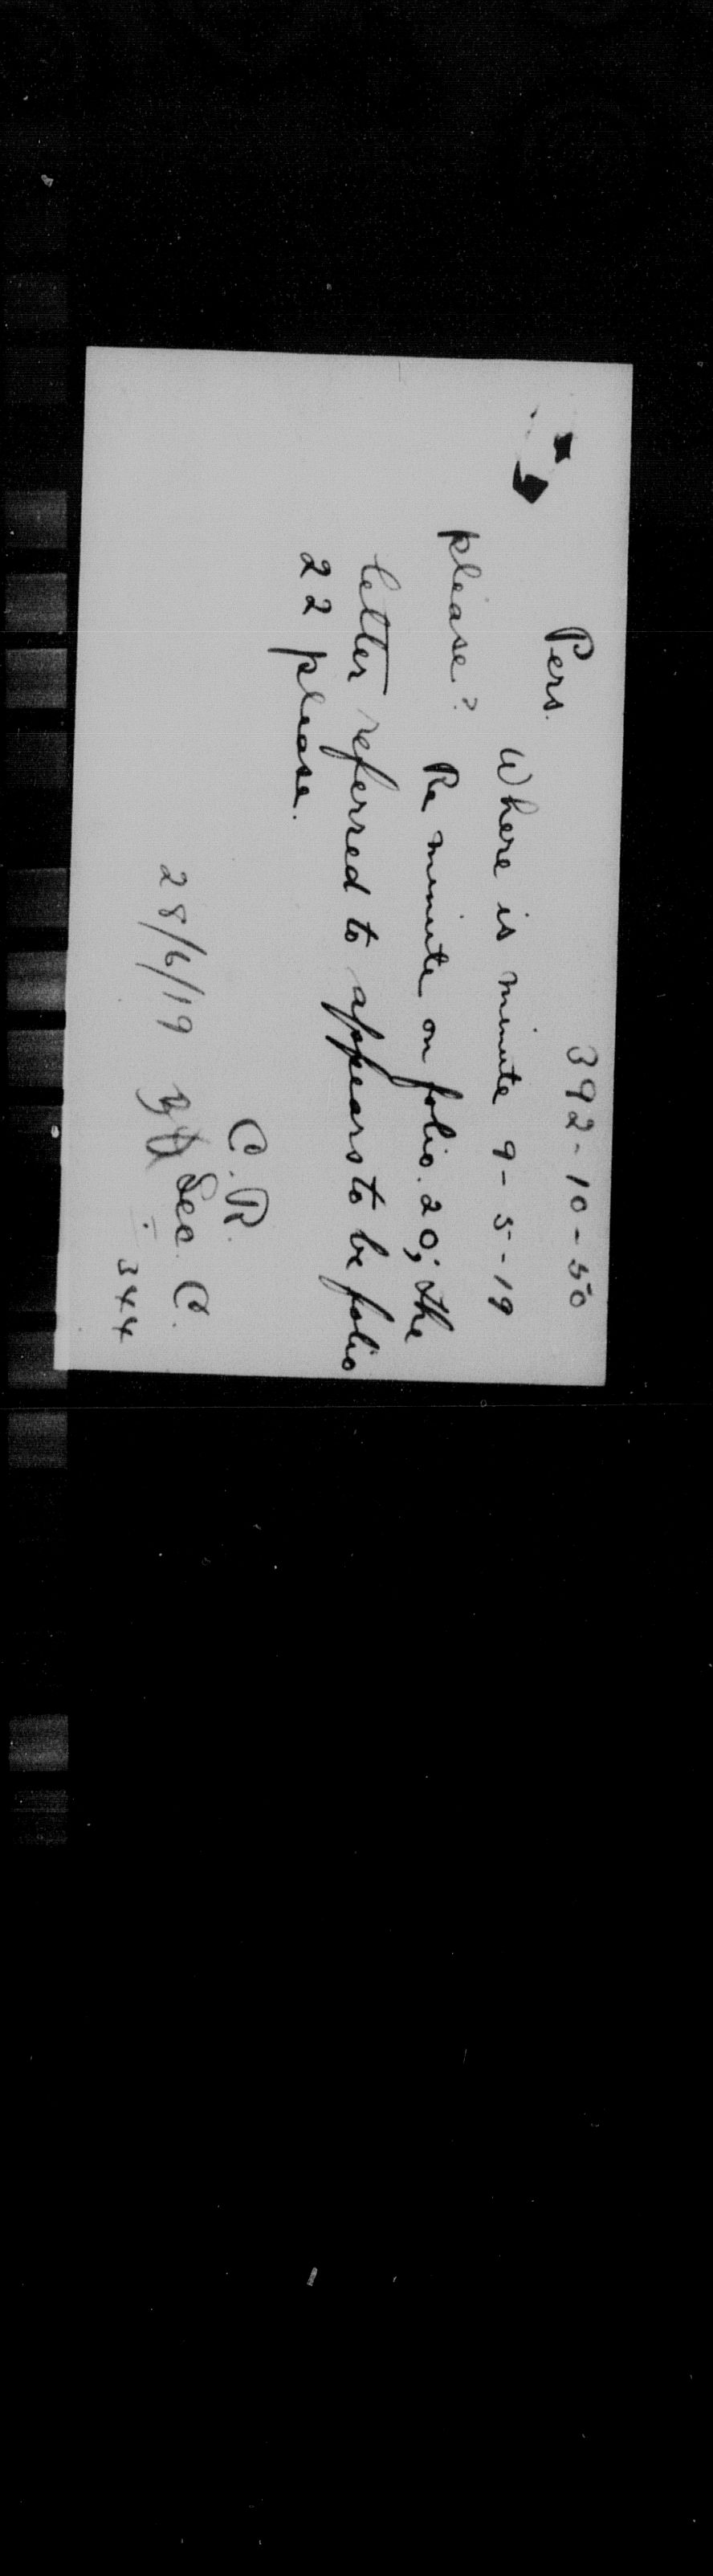 392-10-50
Pers.
Where is minute 9-5-19
please?
Re minute on folio.20; the
letter referred to appears to be folio
22 please.
C.R.
Sec. C.
28/6/19
344